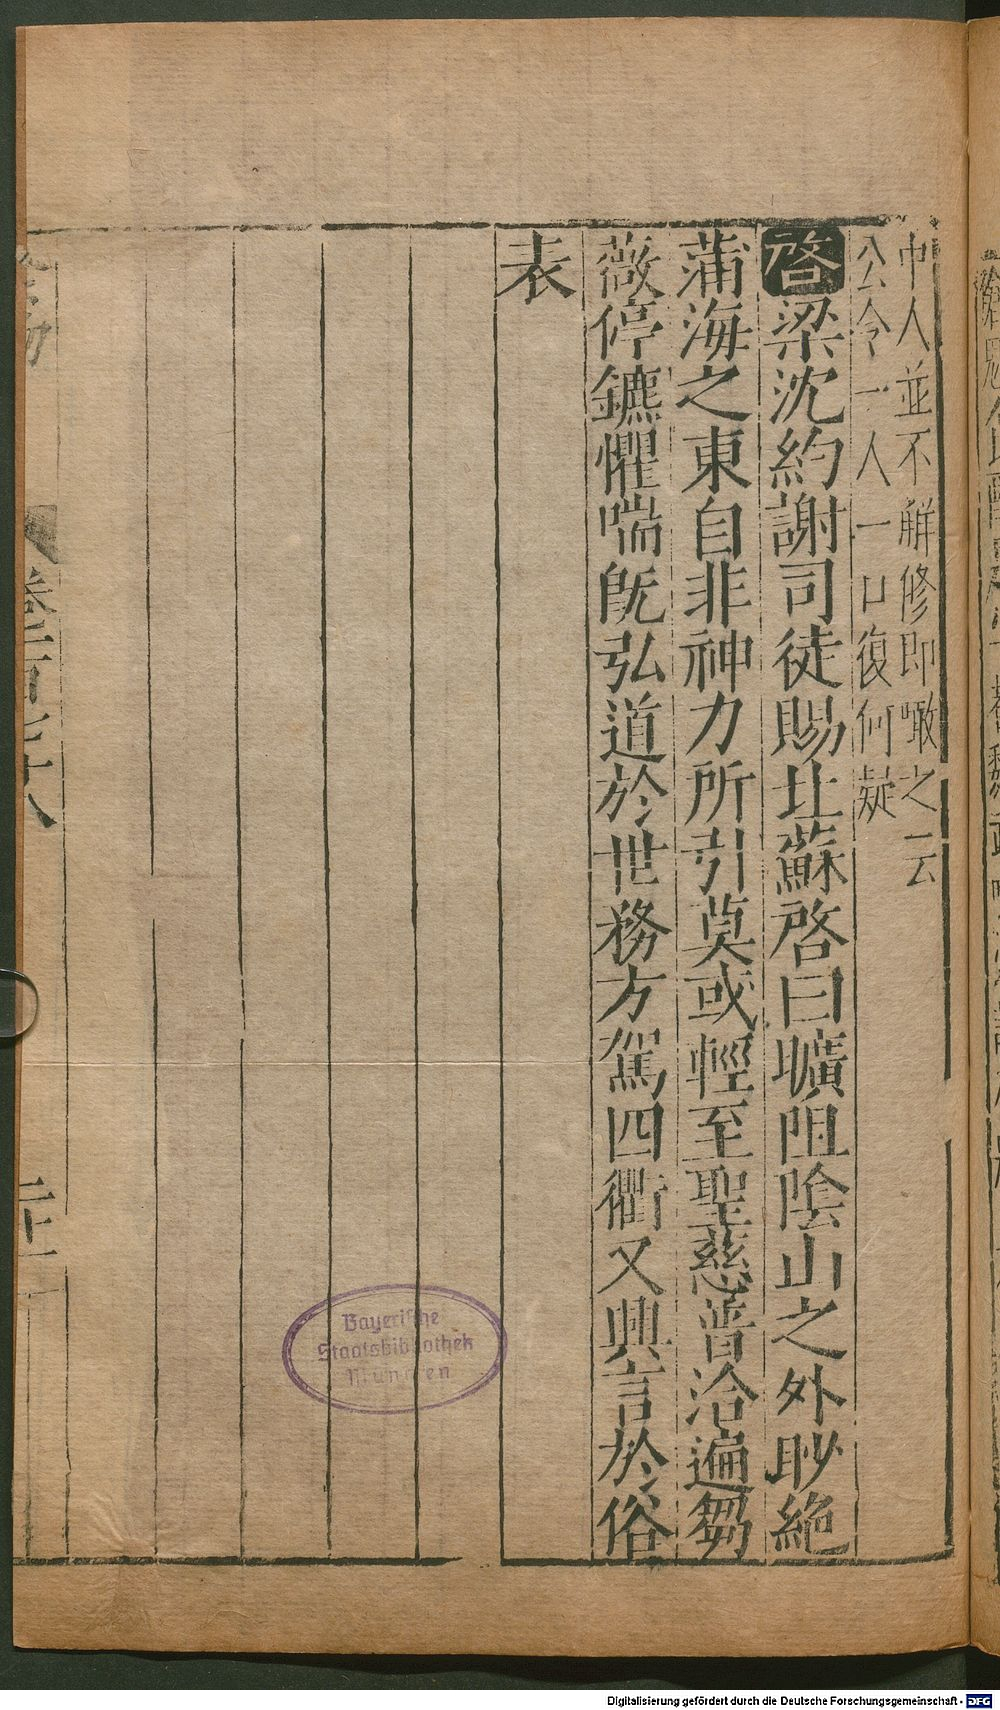 中人並不觧修即噉之云
公令一人一口復何疑
啓梁沈約謝司徒賜北蘇啓曰曠阻陰山之外眇絕
蒲海之東自非神力所引莫或輕至聖慈普洽遍芻
薇停鑣懼喘旣弘道於世務方駕四衢又興言於俗
表
Bayerische
Staatsbibliothek
München
Digitalisierung gefördert durch die Deutsche Forschungsgemeinschaft - DFG